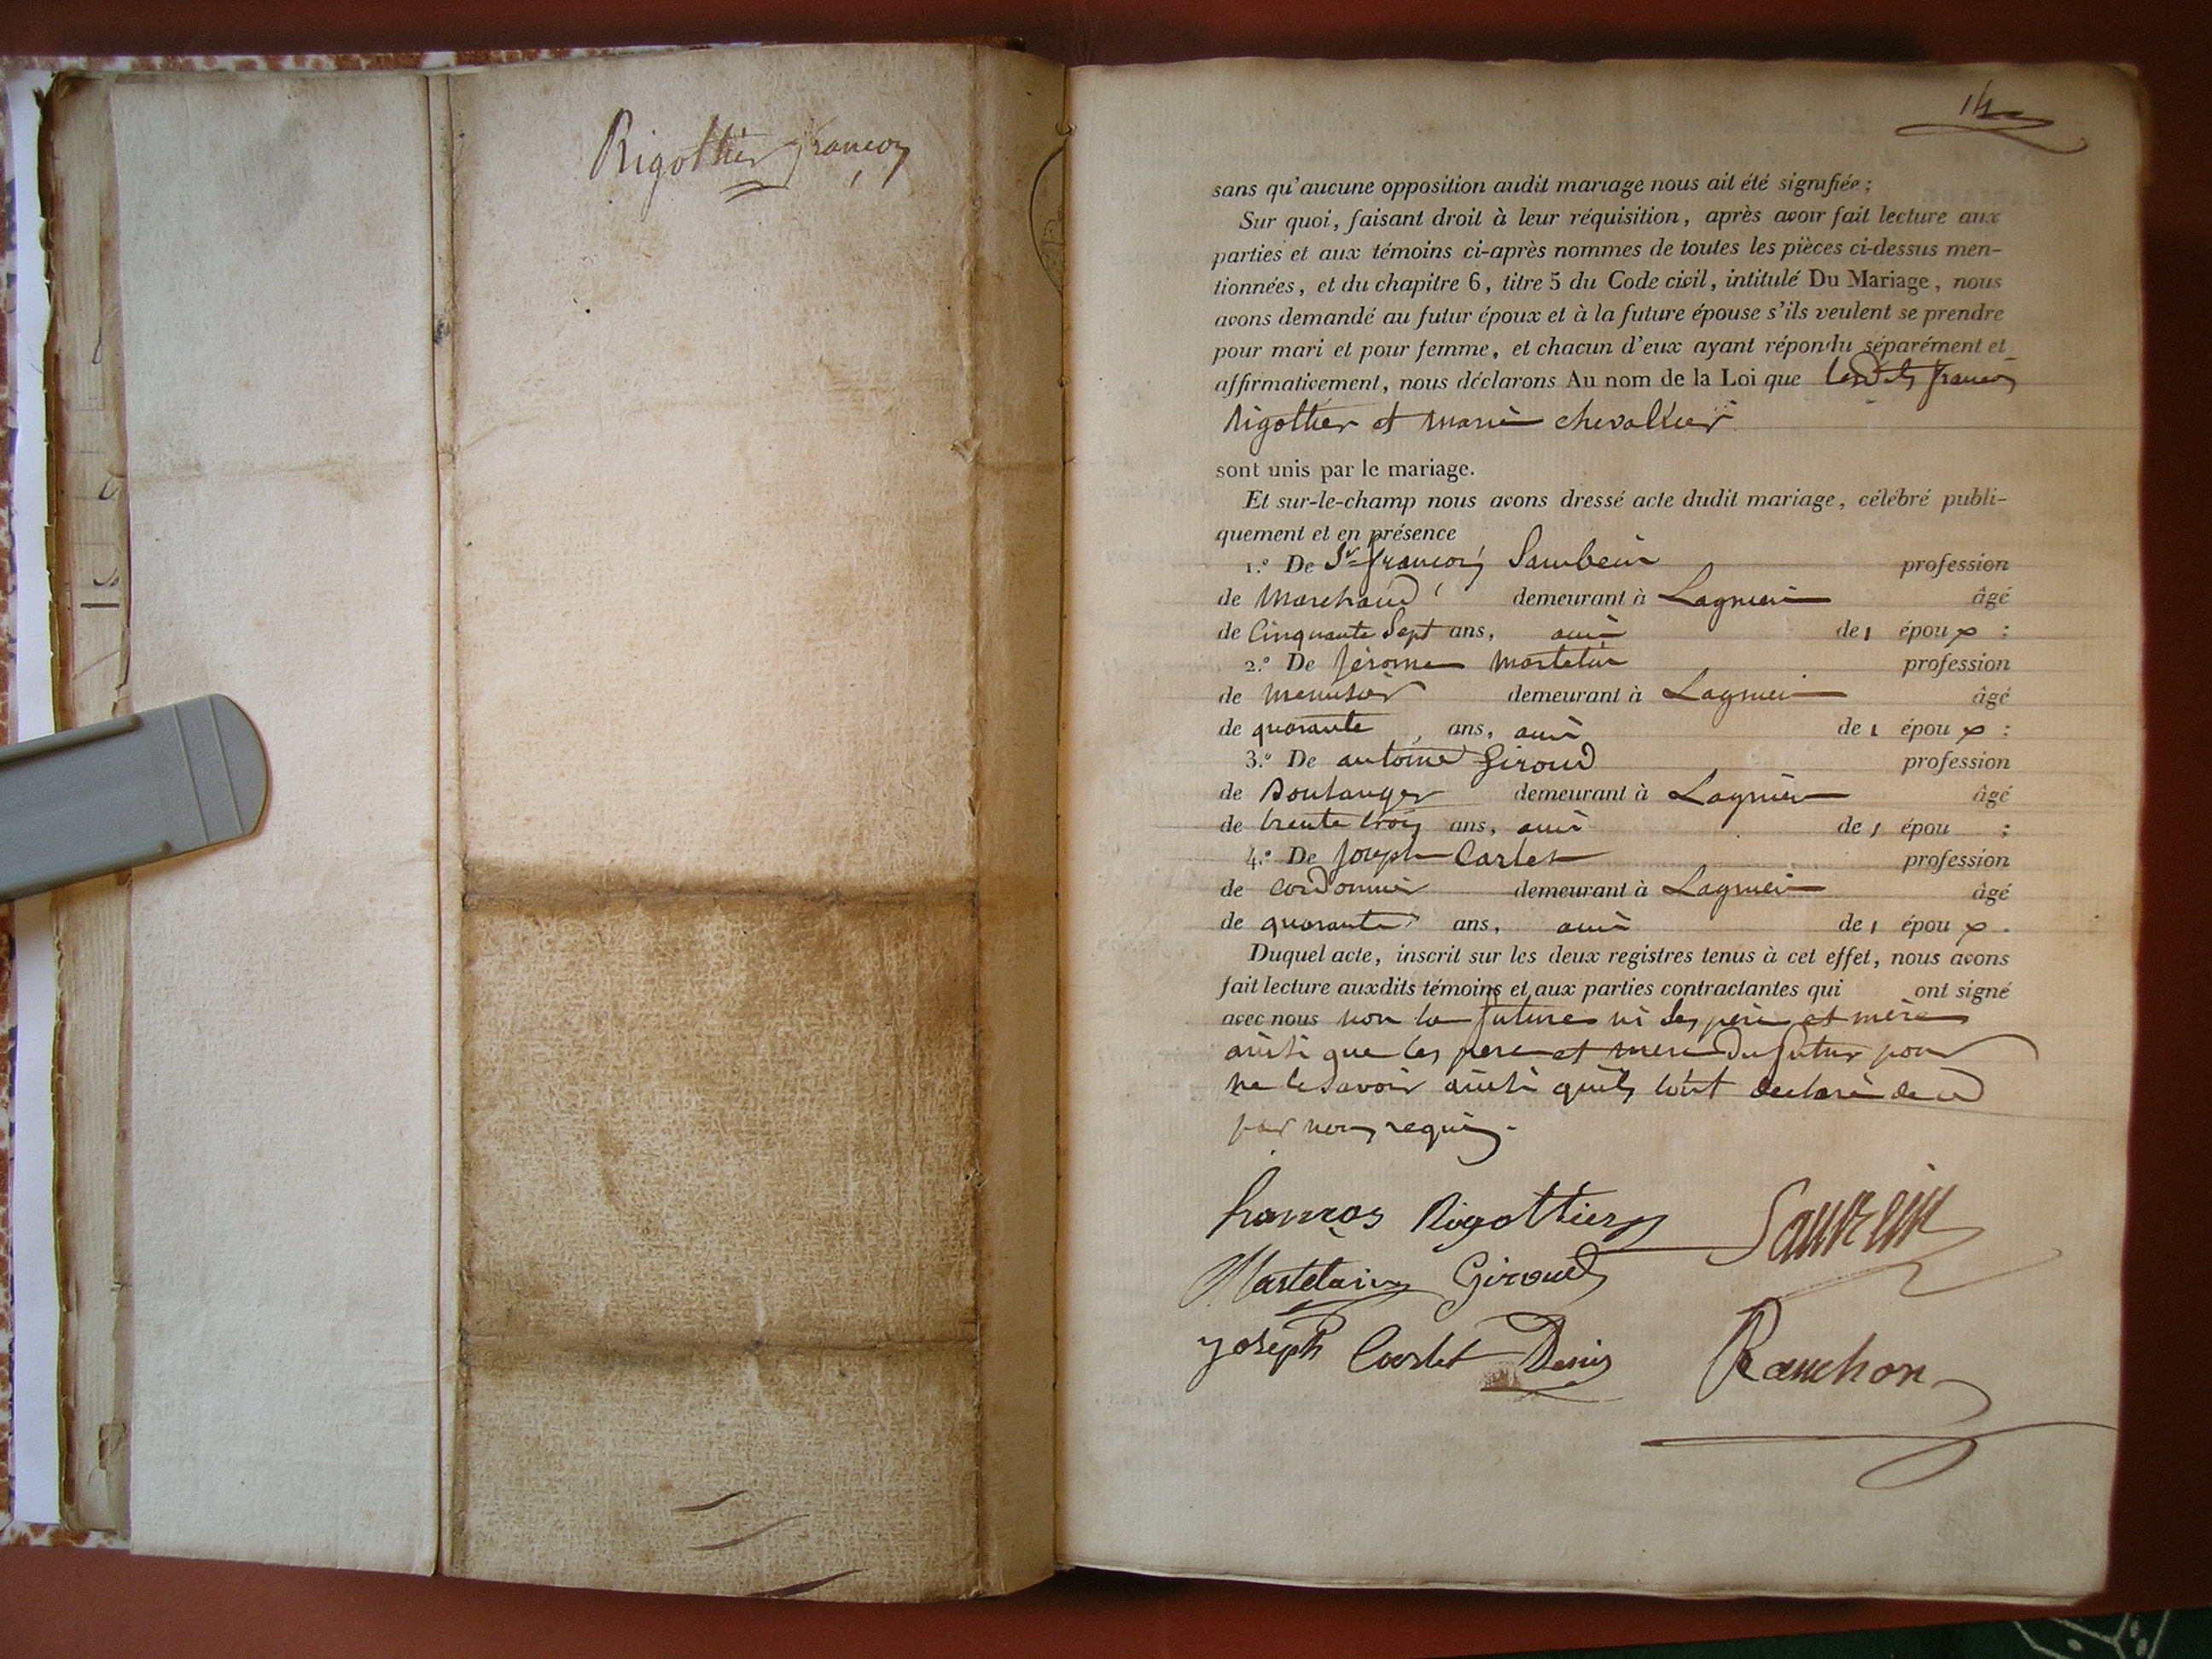 Rigottier françois
14
sans qu'aucune opposition audit mariage nous ait été signifiée ;
Sur quoi, faisant droit à leur réquisition, après avoir fait lecture aux
parties et aux témoins ci-après nommes de toutes les pièces ci-dessus men-
tionnées, et du chapitre 6, titre 5 du Code civil, intitulé Du Mariage, nous
avons demandé au futur époux et à la future épouse s'ils veulent se prendre
pour mari et pour femme, et chacun d'eux ayant répondu séparément et
affirmativement, nous déclarons Au nom de la Loi que lesdits françois
Rigottier et marie chevallier
sont unis par le mariage.
Et sur-le-champ nous avons dressé acte dudit mariage, célébré publi-
quement et en présence
1.° De Sr françois Saubein profession
de Marchand demeurant à Lagnieu âgé
de Cinquante Sept ans, ami de l épou x ;
2.° De Jérome Martelin profession
de menusier demeurant à Lagnieu âgé
de quarante ans, ami de l épou x :
3.° De antoine Giroud profession
de Boulanger demeurant à Lagnieu âgé
de trente trois ans, ami de l épou ;
4.° De Joseph Carlet profession
de cordonnier demeurant à Lagnieu âgé
de quarante ans, ami de l épou x .
Duquel acte, inscrit sur les deux registres tenus à cet effet, nous avons
fait lecture auxdits témoins et aux parties contractantes qui ont signé
avec nous non la future ni ses père et mère
ainsi que les pere et mere du futur pour
ne le savoir ainsi quils lont declaré de ce
par nous requis.
françois Rigottier
Martelain Giroud
joseph Carlet Denis Rauchon